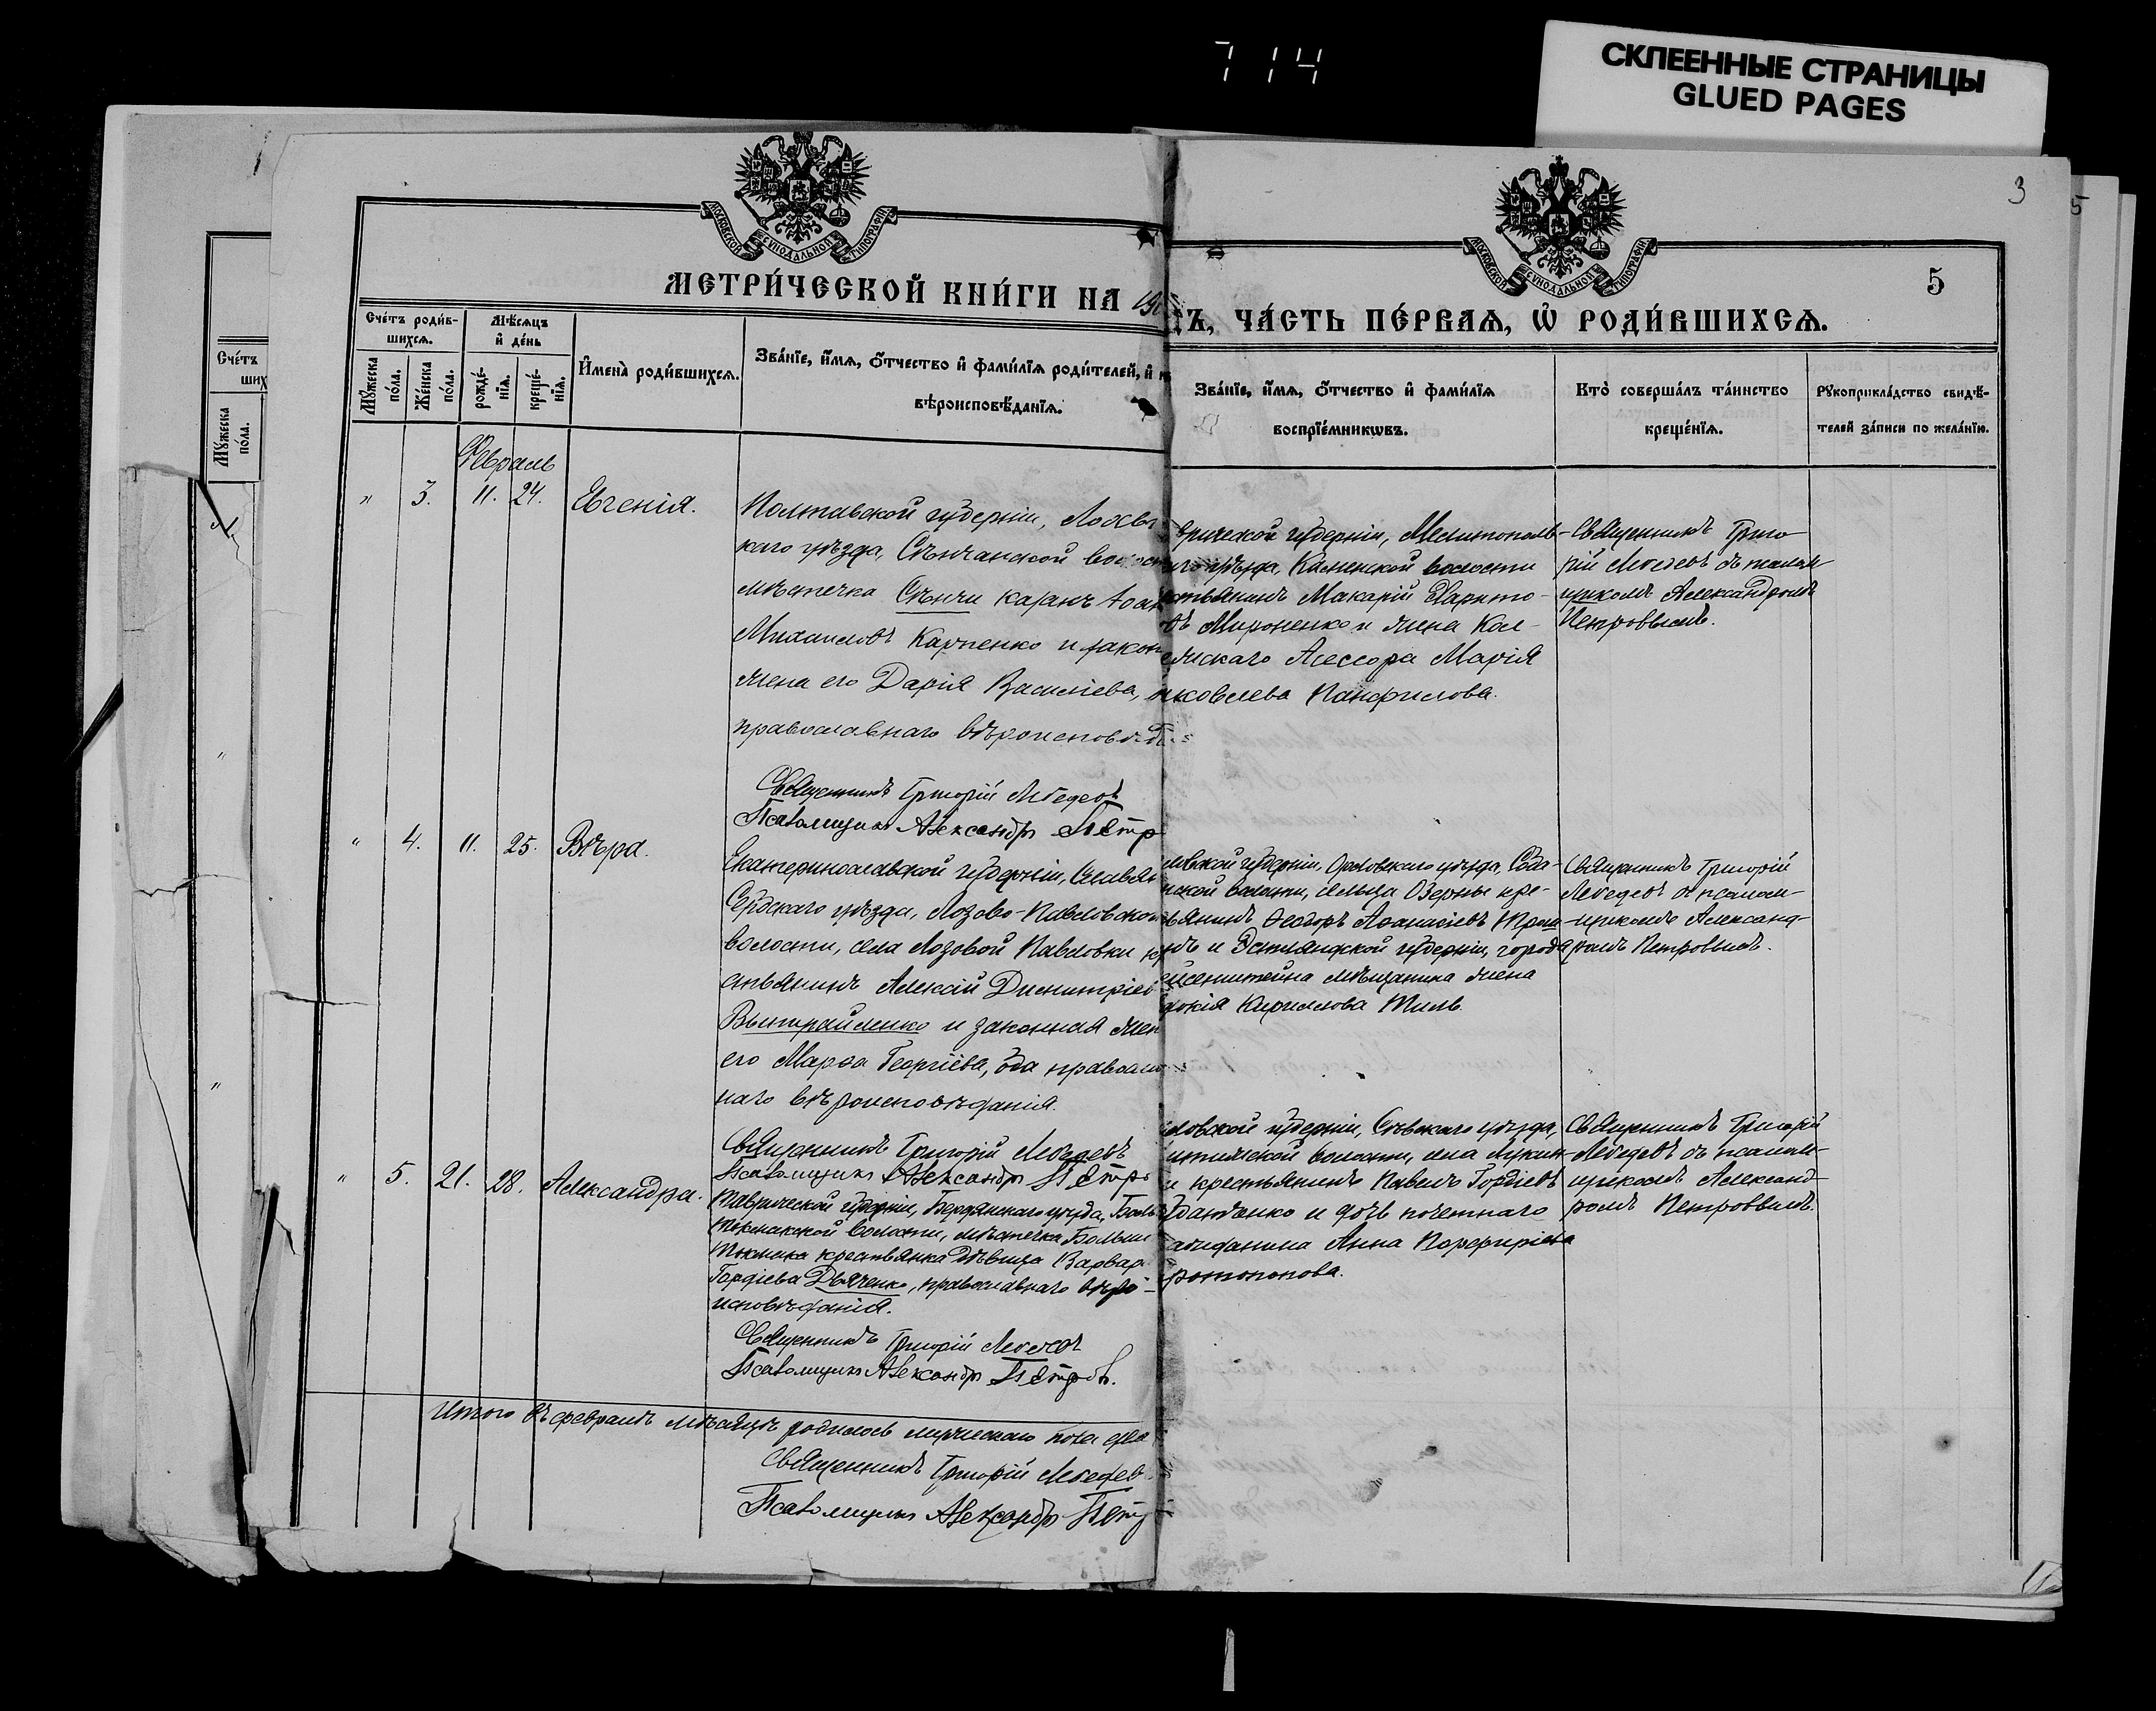 714
СКЛЕЕННЫЕ СТРАНИЦЫ
GLUED PAGES
3
5
МОСКОВСКОЙ СѴНОДАЛЬНОЙ ТИПОГРАФІИ
МОСКОВСКОЙ СѴНОДАЛЬНОЙ ТИПОГРАФІИ
5
МЕТРИ́ЧЕСКОЙ КНИ́ГИ НА 19
Ъ, ЧА́СТЬ ПЕ́РВАЯ, Ѡ РОДИ́ВШИХСЯ.
Сче́тъ
ших
Мꙋ́жеска
по́ла.
Сче́тъ роди́в-
шихсѧ.
Мꙋ́жеска
по́ла.
Же́нска
по́ла.
Мѣ́сѧцъ
и҆ де́нь
рожде́-
нїѧ.
креще́-
нїѧ.
И҆мена̀ роди́вшихсѧ.
Зва́нїе, и҆́мѧ, ѻ҆́тчество и҆ фами́лїѧ роди́телей, и҆
вѣроисповѣ́данїѧ.
Зва́нїе, и҆́мѧ, ѻ҆́тчество и҆ фами́лїѧ
воспрїе́мникѡвъ.
Кто̀ соверша́лъ та́инство
креще́нїѧ.
Рꙋкоприкла́дство свидѣ́-
телей за́писи по жела́нїю.
Февраль
" 3. 11. 24. Евгенія.
Полтавской губерніи, Лохви
каго уѣзда, Сѣнчанской волости
мѣстечка Сѣнчи казакъ Іоан
Михаиловъ Карпенко и закон
жена его Дарія Василіева,
православнаго вѣроисповѣд
Священникъ Григорій Лебедевъ
Псаломщикъ Александръ Петр
врической губерніи, Мелитополь-
каго уѣзда, Каменской волости
стьянинъ Макарій Харито-
въ Мироненко и жена Кол-
ежскаго Асессора Марія
яковлева Панфилова.
Священникъ Григо
рій Лебедевъ съ псалом
щикомъ Александромъ
Петровымъ.
" 4. 11. 25. Вѣра.
Екатеринославской губерніи, Славян
Сербскаго уѣзда, Лозово-Павловской
волости, села Лозовой Павловки кр
стьянинъ Алексій Димитріев
Вытрайленко и законная жен
его Марѳа Георгіева, оба правосла
наго вѣроисповѣданія.
Священникъ Григорій Лебедевъ
Псаломщикъ Александръ Петр
ловской губерніи, Орловскаго уѣзда,
ской волости, сельца Озерны кре-
ьянинъ Ѳеодоръ Аѳанасіевъ
нъ и Эстляндской губерніи, города
йсенштейна мѣщанина жена
докія Кириллова Тиль.
Священникъ Григорій
Лебедевъ съ псалом-
щикомъ Александ-
ромъ Петровымъ.
" 5. 21. 28. Александра.
Таврической губерніи, Бердянскаго уѣзда, Боль
Токмакской волости, мѣстечка Больш
Токмака крестьянка дѣвица Варвар
Гордіева Дьяченко, православнаго вѣро-
исповѣданія.
Священникъ Григорій Лебедевъ
Псаломщикъ Александръ Петровъ.
ловской губерніи, Сѣвскаго уѣзда,
волости, села Лукин
и крестьянинъ Павелъ Гордіевъ
и дочь почетнаго
ажданина Анна Порфиріева
ротопопова.
Священникъ Григорій
Лебедевъ съ псалом-
щикомъ Александ-
ромъ Петровымъ.
Итого въ февралѣ мѣсяцѣ родилось мужескаго пола два
Священникъ Григорій Лебедев
Псаломщикъ Александръ Петр